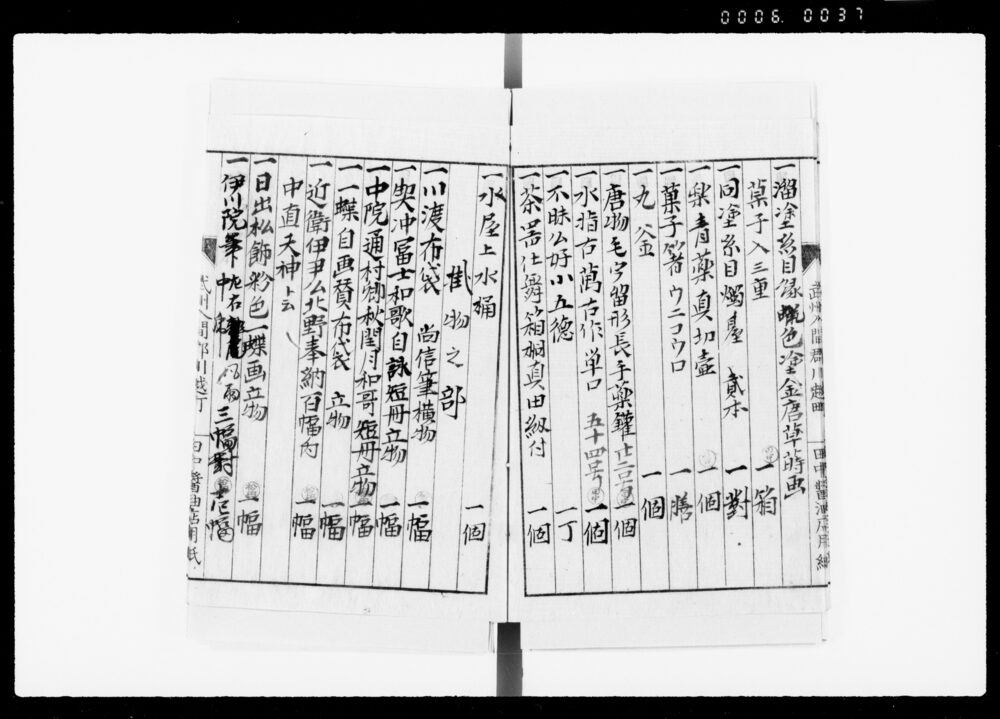 0006.0037
武州入間郡川越町
田中醤油店用紙
一溜塗糸目縁蝋色塗金唐草蒔画
菓子入三重 一箱
一同塗糸目燭䑓 貳本 一對
一楽青薬真切壷 一個
一菓子箸ウニコウロ 一膳
一丸釜 一個
一唐物毛宇留形長手薬鑵 一個
一水指古萬古作単口 五十四号 一個
一不昧公好小五徳 一丁
一茶器仕舞箱桐真田紐付 一個
一水屋上水桶 一個
掛物之部
一川渡布袋 尚信筆横物 一幅
一契沖冨士和歌自詠短冊立物 一幅
一中院通村卿秋閏月和哥短冊立物 一幅
一一蝶自画賛布袋 立物 一幅
一近衛伊尹公北野奉納百幅内
中直天神ト云 一幅
一日出松飾彩色一蝶画立物 一幅
一伊川院筆 中 左右 風雨 三幅對
武州入間郡川越町
田中醤油店用紙